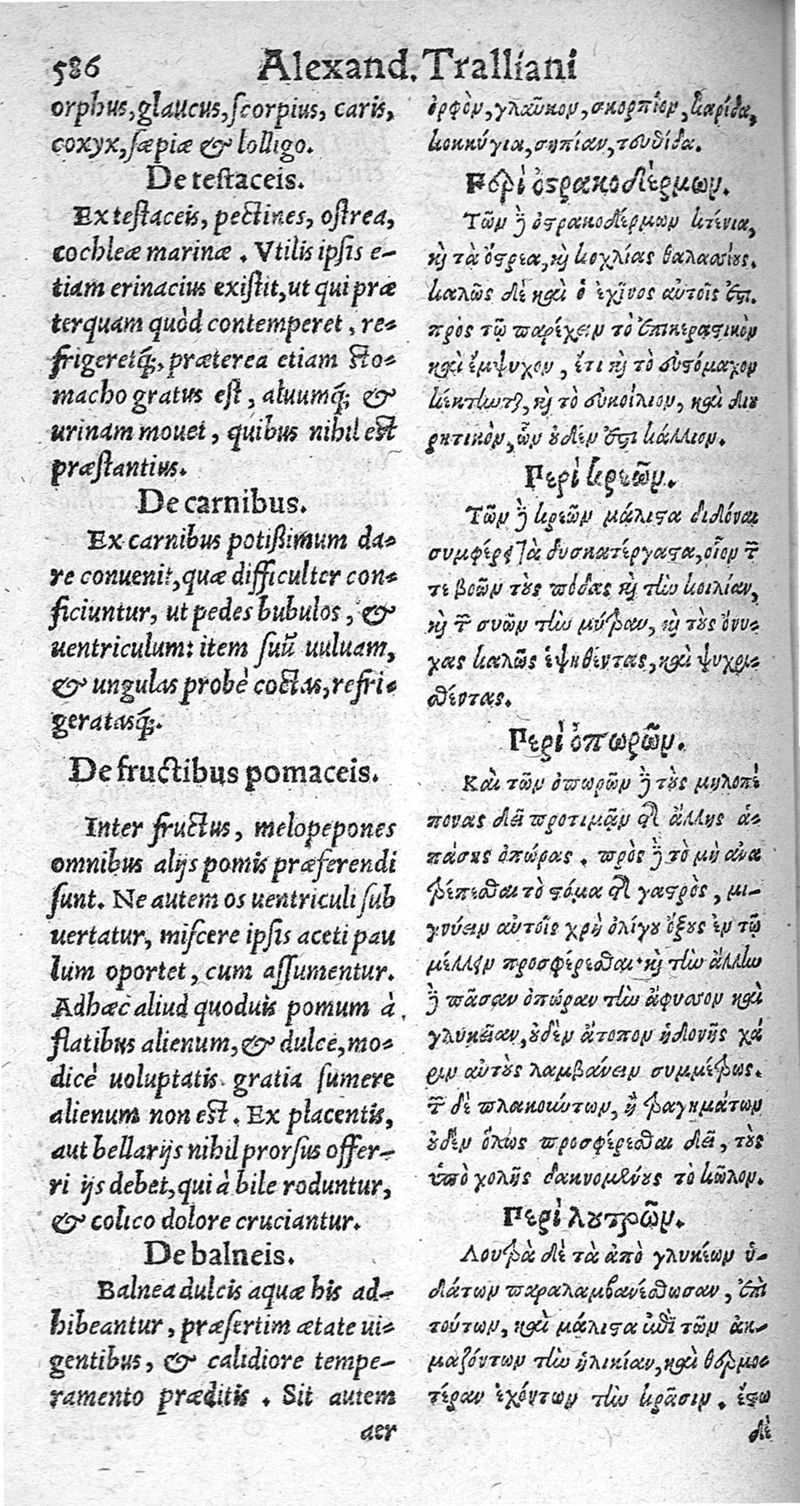 586 Alexand. Tralliani
orphus, glaucus, scorpius, caris,
coxyx, sæpiæ & lolligo.
De testaceis.
Ex testaceis, pectines, ostrea,
cochleæ marinæ. Vtilis ipsis e-
tiam erinacius existit, ut qui præ
terquam quòd contemperet, re-
frigeretq́;, præterea etiam sto-
macho gratus est, aluumq́; &
urinam mouet, quibus nihil est
præstantius.
De carnibus.
Ex carnibus potißimum da-
re conuenit, quæ difficulter con-
ficiuntur, ut pedes bubulos, &
uentriculum: item suũ uuluam,
& ungulas probè coctas, refri-
geratasq́;.
De fructibus pomaceis.
Inter fructus, melopepones
omnibus alijs pomis præferendi
sunt. Ne autem os uentriculi sub
uertatur, miscere ipsis aceti pau
lum oportet, cum assumentur.
Adhæc aliud quoduis pomum à
flatibus alienum, & dulce, mo-
dicè uoluptatis gratia sumere
alienum non est. Ex placentis,
aut bellarijs nihil prorsus offer-
ri ijs debet, qui à bile roduntur,
& colico dolore cruciantur.
De balneis.
Balnea dulcis aquæ his ad-
hibeantur, præsertim ætate ui-
gentibus, & calidiore tempe-
ramento præditis. Sit autem
aer
ὀρφὸν, γλαῦκον, σκορπίον, καρίδα,
κοκκύγια, σηπίαν, τευθίδα.
Περὶ ὀστρακοδέρμων.
Τῶν ἢ ὀστρακοδέρμων κτένια,
κὴ τὰ ὄστρεα, κὴ κοχλίας θαλασσίους.
καλῶς δὲ καὶ ὁ ἐχῖνος αὐτοῖς ἐστι.
πρὸς τῷ παρέχειν τὸ ἐπικεραστικὸν
καὶ ἔμψυχον, ἔτι κὴ τὸ εὐστόμαχον
κέκτηται, κὴ τὸ εὐκοίλιον, καὶ διου
ρητικὸν, ὧν οὐδέν ἐστι κάλλιον.
Περὶ κρεῶν.
Τῶν ἢ κρεῶν μάλιστα διδόναι
συμφέρει τὰ δυσκατέργαστα, οἷον τῶν
τε βοῶν τοὺς πόδας κὴ τὴν κοιλίαν,
κὴ τῶν συῶν τὴν μήτραν, κὴ τοὺς ὄνυ-
χας καλῶς ἑψηθέντας, καὶ ψυχρι-
σθέντας.
Περὶ ὀπωρῶν.
Καὶ τῶν ὀπωρῶν ἢ τοὺς μηλοπέ
πονας δεῖ προτιμᾶν τῆς ἄλλης ἁ-
πάσης ὀπώρας. πρὸς ἢ τὸ μὴ ἀνα
τρέπεσθαι τὸ στόμα τῆς γαστρὸς, μι-
γνύειν αὐτοῖς χρὴ ὀλίγου ὄξους ἐν τῷ
μέλλειν προσφέρεσθαι· κὴ τὴν ἄλλην
ἢ πᾶσαν ὀπώραν τὴν ἄφυσον καὶ
γλυκεῖαν, οὐδὲν ἄτοπον ἡδονῆς χά
ριν αὐτοὺς λαμβάνειν συμμέτρως.
τῶν δὲ πλακούντων, ἢ τραγημάτων
οὐδὲν ὅλως προσφέρεσθαι δεῖ, τοὺς
ὑπὸ χολῆς δακνομένους τὸ κῶλον.
Περὶ λουτρῶν.
Λουτρὰ δὲ τὰ ἀπὸ γλυκέων ὑ-
δάτων παραλαμβανέσθωσαν, ἐπὶ
τούτων, καὶ μάλιστα ἐπὶ τῶν ἀκ-
μαζόντων τὴν ἡλικίαν, καὶ θερμο-
τέραν ἐχόντων τὴν κρᾶσιν. ἔστω
δὲ